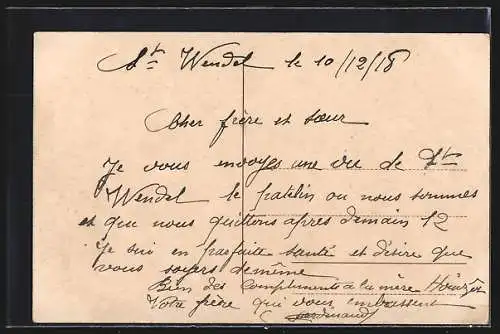 St Wendel le 10/12/18
Cher frère et soeur
Je vous envoyes une vu de St
Wendel le patelin ou nous sommes
et que nous quittons apres demain 12
Je sui en parfaite santé et désire que
vous soyers de même
Bien des compliments à la mère
Votre frère qui vous embrassent
Ferdinand